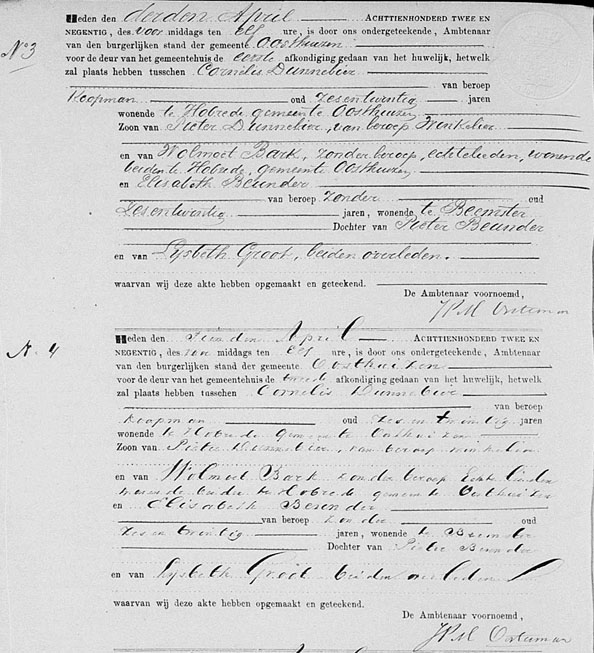 Heden den derden April ACHTTIENHONDERD TWEE EN
No 3
NEGENTIG, des voor middags ten elf ure, is door ons ondergeteekende, Ambtenaar
van den burgerlijken stand der gemeente Oosthuizen
voor de deur van het gemeentehuis de eerste afkondiging gedaan van het huwelijk, hetwelk
zal plaats hebben tusschen Cornelis Dunnebier
van beroep
Koopman oud zesentwintig jaren
wonende te Hobrede gemeente Oosthuizen
Zoon van Pieter Dunnebier, van beroep Winkelier
en van Wolmoet Bark, zonder beroep, echtelieden, wonende
beiden te Hobrede, gemeente Oosthuizen
en Elisabeth Beunder
van beroep zonder oud
zesentwintig jaren, wonende te Beemster
Dochter van Pieter Beunder
en van Lijsbeth Groot, beiden overleden.
waarvan wij deze akte hebben opgemaakt en geteekend.
De Ambtenaar voornoemd,
N. 4
Heden den Tienden April ACHTTIENHONDERD TWEE EN
NEGENTIG, des voor middags ten elf ure, is door ons ondergeteekende, Ambtenaar
van den burgerlijken stand der gemeente Oosthuizen
voor de deur van het gemeentehuis de tweede afkondiging gedaan van het huwelijk, hetwelk
zal plaats hebben tusschen Cornelis Dunnebier
van beroep
koopman oud zesentwintig jaren
wonende te Hobrede gemeente Oosthuizen
Zoon van Pieter Dunnebier, van beroep winkelier
en van Wolmoet Bark zonder beroep Echtelieden
wonende beide te Hobrede gemeente Oosthuizen
en Elisabeth Beunder
van beroep zonder oud
zesentwintig jaren, wonende te Beemster
Dochter van Pieter Beunder
en van Lijsbeth Groot beiden overleden
waarvan wij deze akte hebben opgemaakt en geteekend.
De Ambtenaar voornoemd,